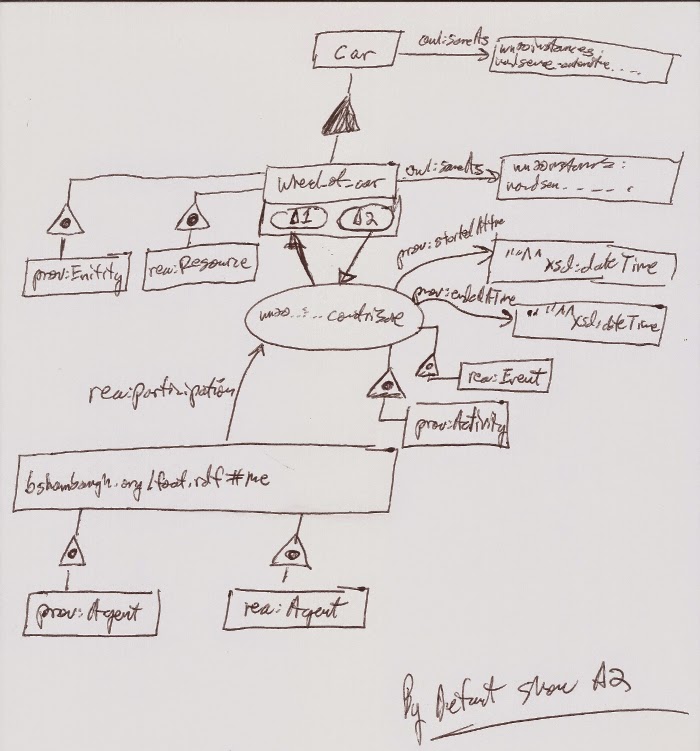 car
owl:sameAs
wn20instances:
wordsense-automobile.....
wheel_of_car
owl:sameAs
wn20instances:
wordsen.....
Δ1 Δ2
prov:Enitity
rea:Resource
prov:startedAtTime
""^^xsd:dateTime
prov:endedAtTime
""^^xsd:dateTime
wn20...:...contribute
rea:Event
prov:Activity
rea:participation
bshambaugh.org/foaf.rdf#me
prov:Agent
rea:Agent
By Default show Δ2